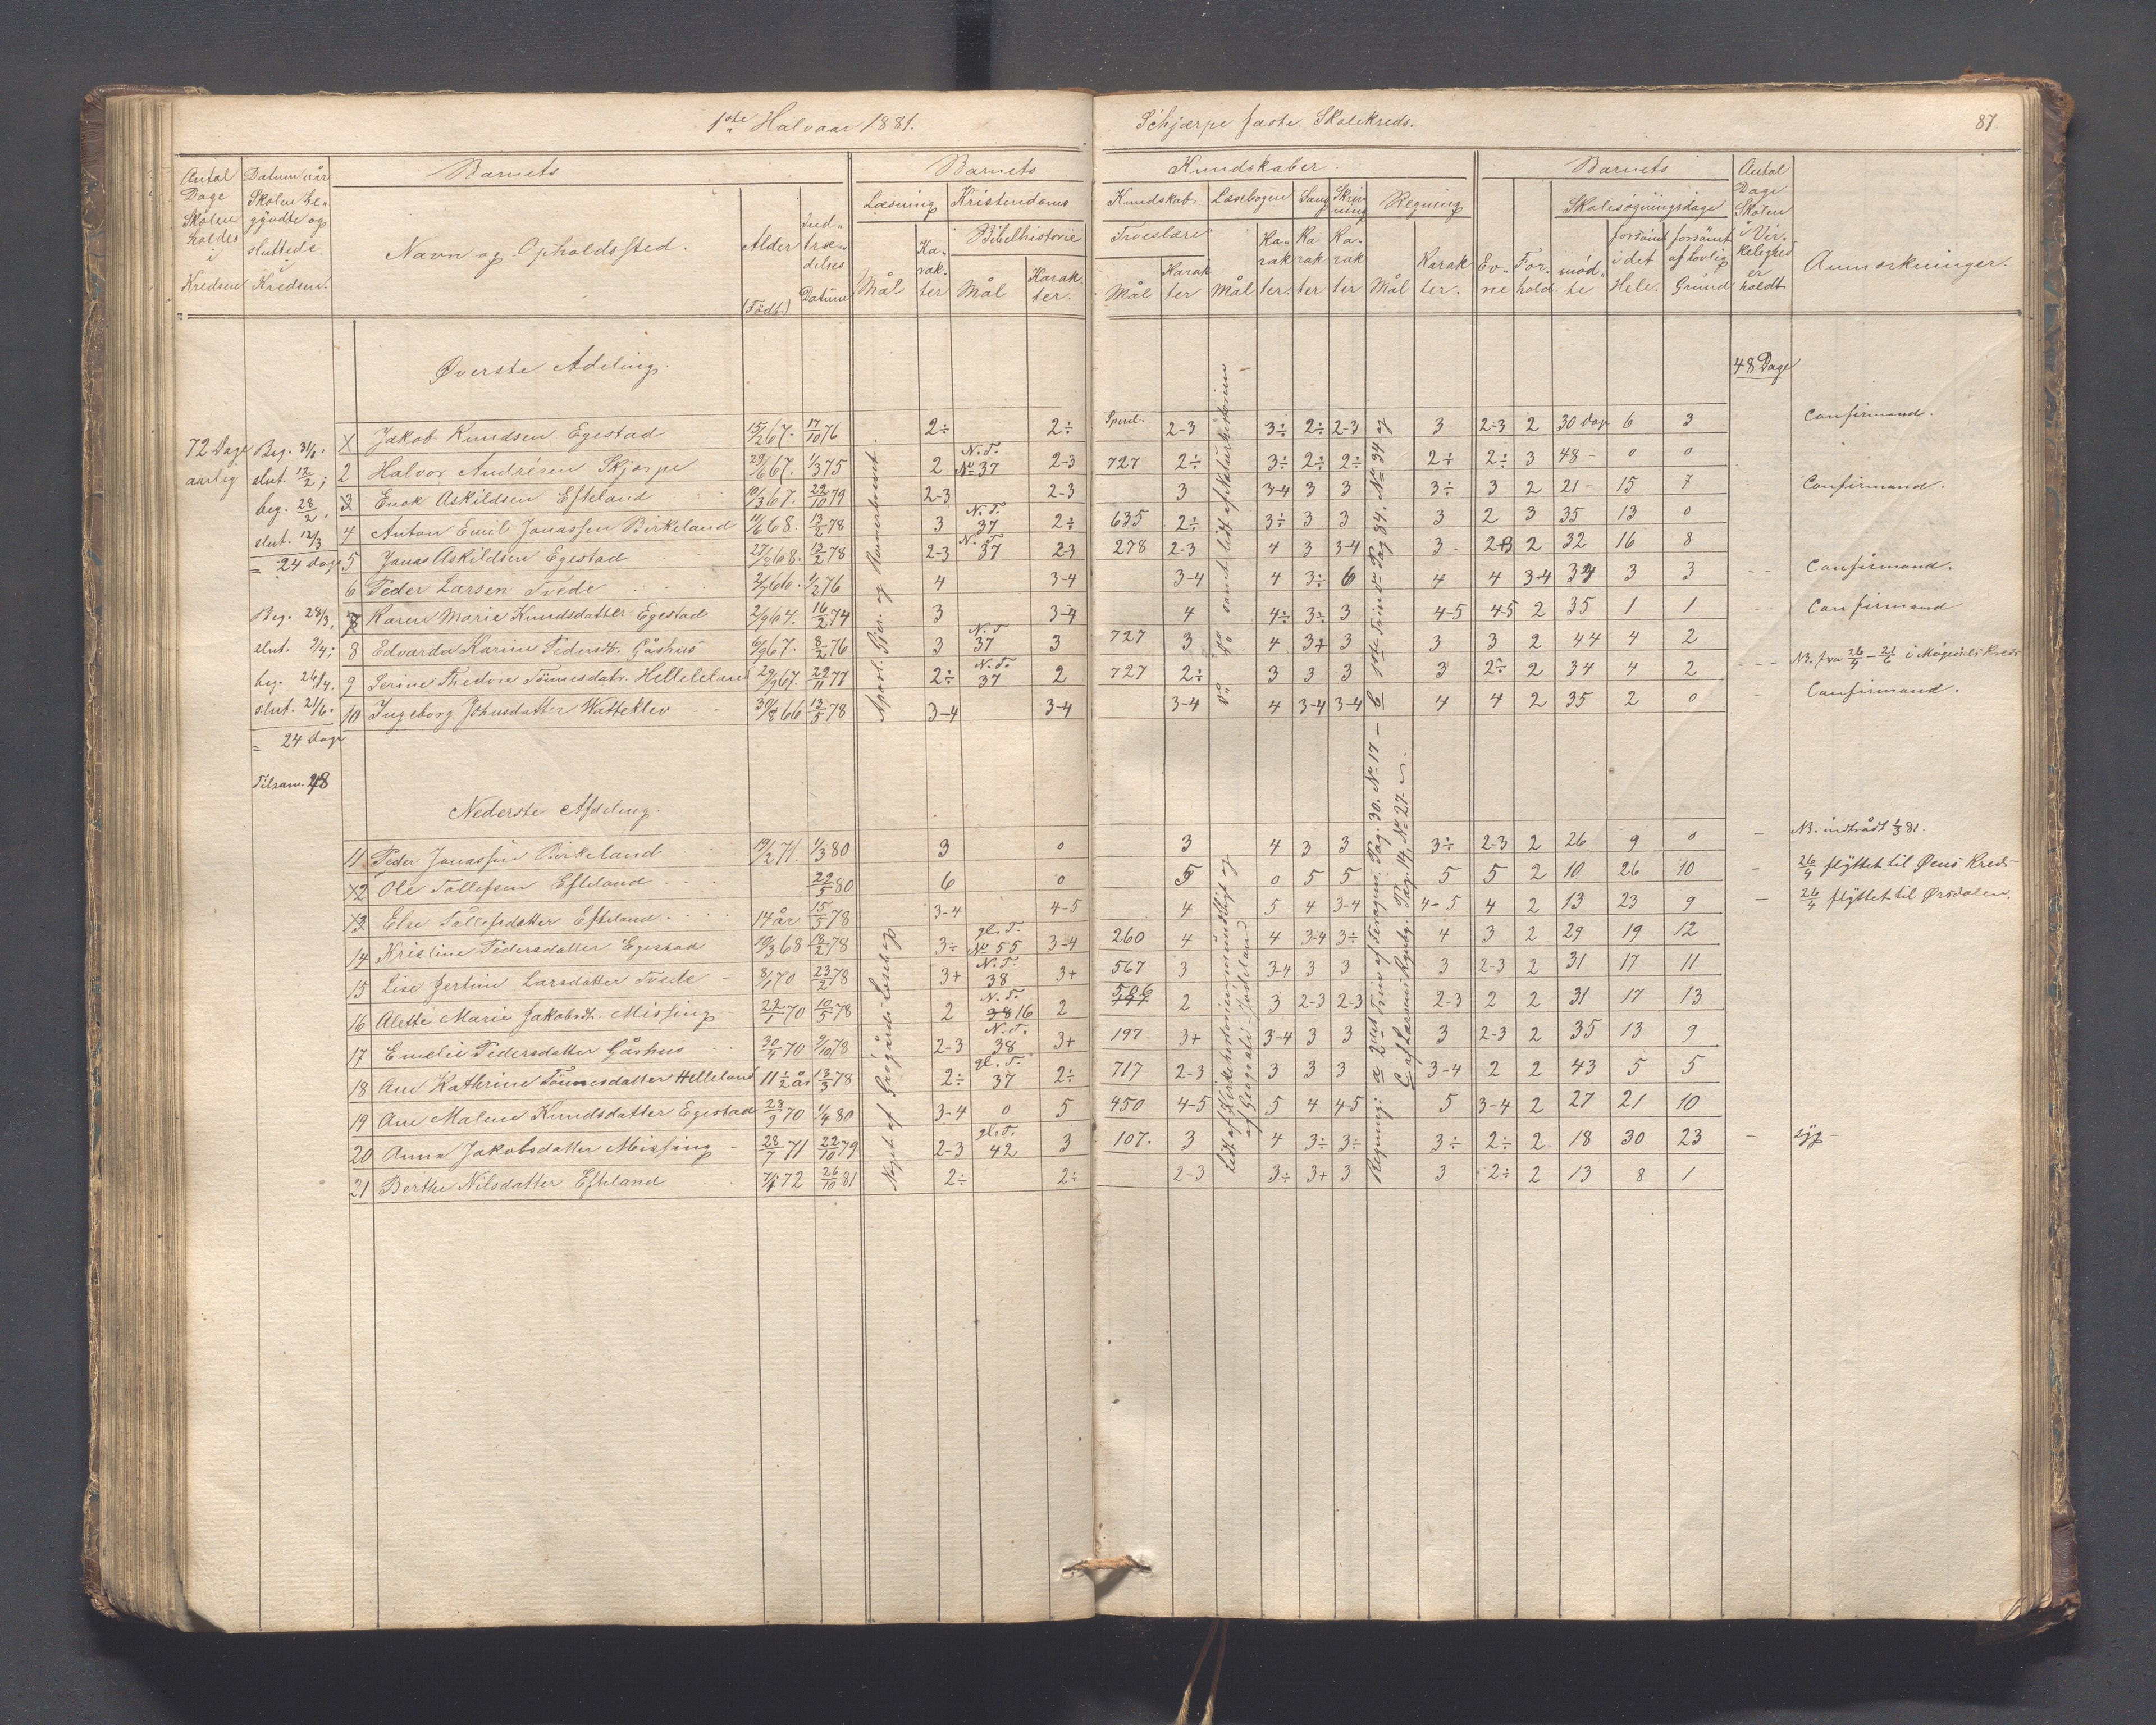 1ste Halvaar 1881. Schjærpe faste Skolekreds. 87.
Antal Dage Skolen holdes i Kredsen
Datum når Skolen begyndte og sluttede i Kredsen.
Barnets
Navn og Opholdssted.
Alder (Født)
Indtrædelses Datum
Barnets Kundskaber.
Læsning Mål Karakter
Kristendoms Kundskab
Bibelhistorie Mål Karakter.
Troeslære Mål Karakter
Læsebogen Mål Karakter.
Sang Karakter
Skrivning Karakter
Regning Mål Karakter.
Barnets
Evne Forhold.
Skolesøgningsdage
mødte forsömt i det Hele. forsömt af lovlig Grund
Antal Dage Skolen i Virkelighed er holdt
Anmærkninger.
72 Dage aarlig
Beg. 31/1.
slut. 12/2;
beg. 28/2,
slut. 12/3
= 24 dage
Beg. 28/3,
slut. 9/4;
beg. 26/4.
slut. 21/6.
= 24 dage
Tilsam. 48
Øverste Adeling. 48 Dage
X Jakob Knudsen Egestad 15/2 67. 17/10 76 2÷ 2÷ Spud. 2-3 3÷ 2÷ 2-3 3 2-3 2 30 dage 6 3 Confirmand.
2 Halvor Andrésen Skjærpe 29/6 67. 1/3 75 2 N.T. No 37 2-3 727 2÷ 3÷ 2÷ 2÷ 2÷ 2÷ 3 48 - 0 0
3 Enok Askildsen Efteland 10/3 67. 22/10 79 2-3 2-3 3 3-4 3 3 3÷ 3 2 21 - 15 7 Confirmand.
4 Anton Emil Jonassen Birkeland 11/6 68. 13/2 78 3 N.T. 37 2÷ 635 2÷ 3÷ 3 3 3 2 3 35 13 0
5 Jonas Askildsen Egestad 27/2 68. 13/2 78 2-3 N.T. 37 2-3 278 2-3 4 3 3-4 3 2-3 2 32 16 8
6 Peder Larsen Tvede 2/7 66. 1/2 76 4 3-4 3-4 4 3÷ 6 4 4 3-4 34 3 3 Confirmand.
7 Karen Marie Knudsdatter Egestad 2/9 67. 16/2 74 3 3-4 4 4÷ 3÷ 3 4-5 4-5 2 35 1 1 Confirmand
8 Edvarda Karine Pedersdt. Gåshus 6/9 67. 8/2 76 3 N.T. 37 3 727 3 4 3+ 3 3 3 2 44 4 2
9 Serine Thedore Tönnesdatr. Helleland 29/9 67. 29/11 77 2÷ N.T. 37 2 727 2÷ 3 3 3 3 2÷ 2 34 4 2 NB. fra 26/4 - 21/6 i Kreds
10 Ingeborg Johnsdatter Watteklev 30/8 66 13/5 78 3-4 3-4 3-4 4 3-4 3-4 4 4 2 35 2 0 Confirmand.
Nederste Afdeling.
11 Peder Jonassen Birkeland 19/2 71. 1/3 80 3 0 3 4 3 3 3÷ 2-3 2 26 9 0 NB. indtrådt 1/3 81.
12 Ole Tollefsen Efteland 29/5 80 6 0 5 0 5 5 5 5 2 10 26 10 26/4 flyttet til Øens Kreds
13 Else Tollefsdatter Efteland 14 år 15/5 78 3-4 4-5 4 5 4 3-4 4-5 4 2 13 23 9 26/4 flyttet til Ørsdalen.
14 Kristine Pedersdatter Egestad 10/3 68 13/2 78 3÷ gl. T. No 55 3-4 260 4 4 3-4 3÷ 4 3 2 29 19 12
15 Lise Jertine Larsdatter Tvede 8/1 70 23/2 78 3+ N.T. 38 3+ 567 3 3-4 3 3 3 2-3 2 31 17 11
16 Alette Marie Jakobsdt. Missing 22/1 70 10/5 78 2 N.T. 38 16 2 586 2 3 2-3 2-3 2-3 2 2 31 17 13
17 Emelie Pedersdatter Gåshus 30/4 70 9/10 78 2-3 N.T. 38 3+ 197 3+ 3-4 3 3 3 2-3 2 35 13 9
18 Ane Kathrine Tönnesdatter Helleland 11 1/2 år 13/3 78 2÷ gl. T. 37 2÷ 717 2-3 3 3 3 3-4 2 2 43 5 5
19 Ane Malene Knudsdatter Egestad 28/9 70 1/4 80 3-4 0 5 450 4-5 5 4 4-5 5 3-4 2 27 21 10
20 Anna Jakobsdatter Missing 28/7 71 22/10 79 2-3 gl. T. 42 3 107. 3 4 3÷ 3÷ 3÷ 2÷ 2 18 30 23 syg
21 Berthe Nilsdatter Efteland 7/1 72 26/10 81 2÷ 2÷ 2-3 3÷ 3+ 3 3 2÷ 2 13 8 1
Apost. Gjer. og Romerbrevet
Noget af Grögårds Læsebog
do do samt lidt af Naturhistorien
Lidt af Kirkehistorien mundtligt og af Geografi: Jydeland
Regning: a 2det Trin af Pag. 30. No 17 – b 1ste Trin do Pag 34. No 34 og
C af Larsens Regnebg. Pag. 14, No 27